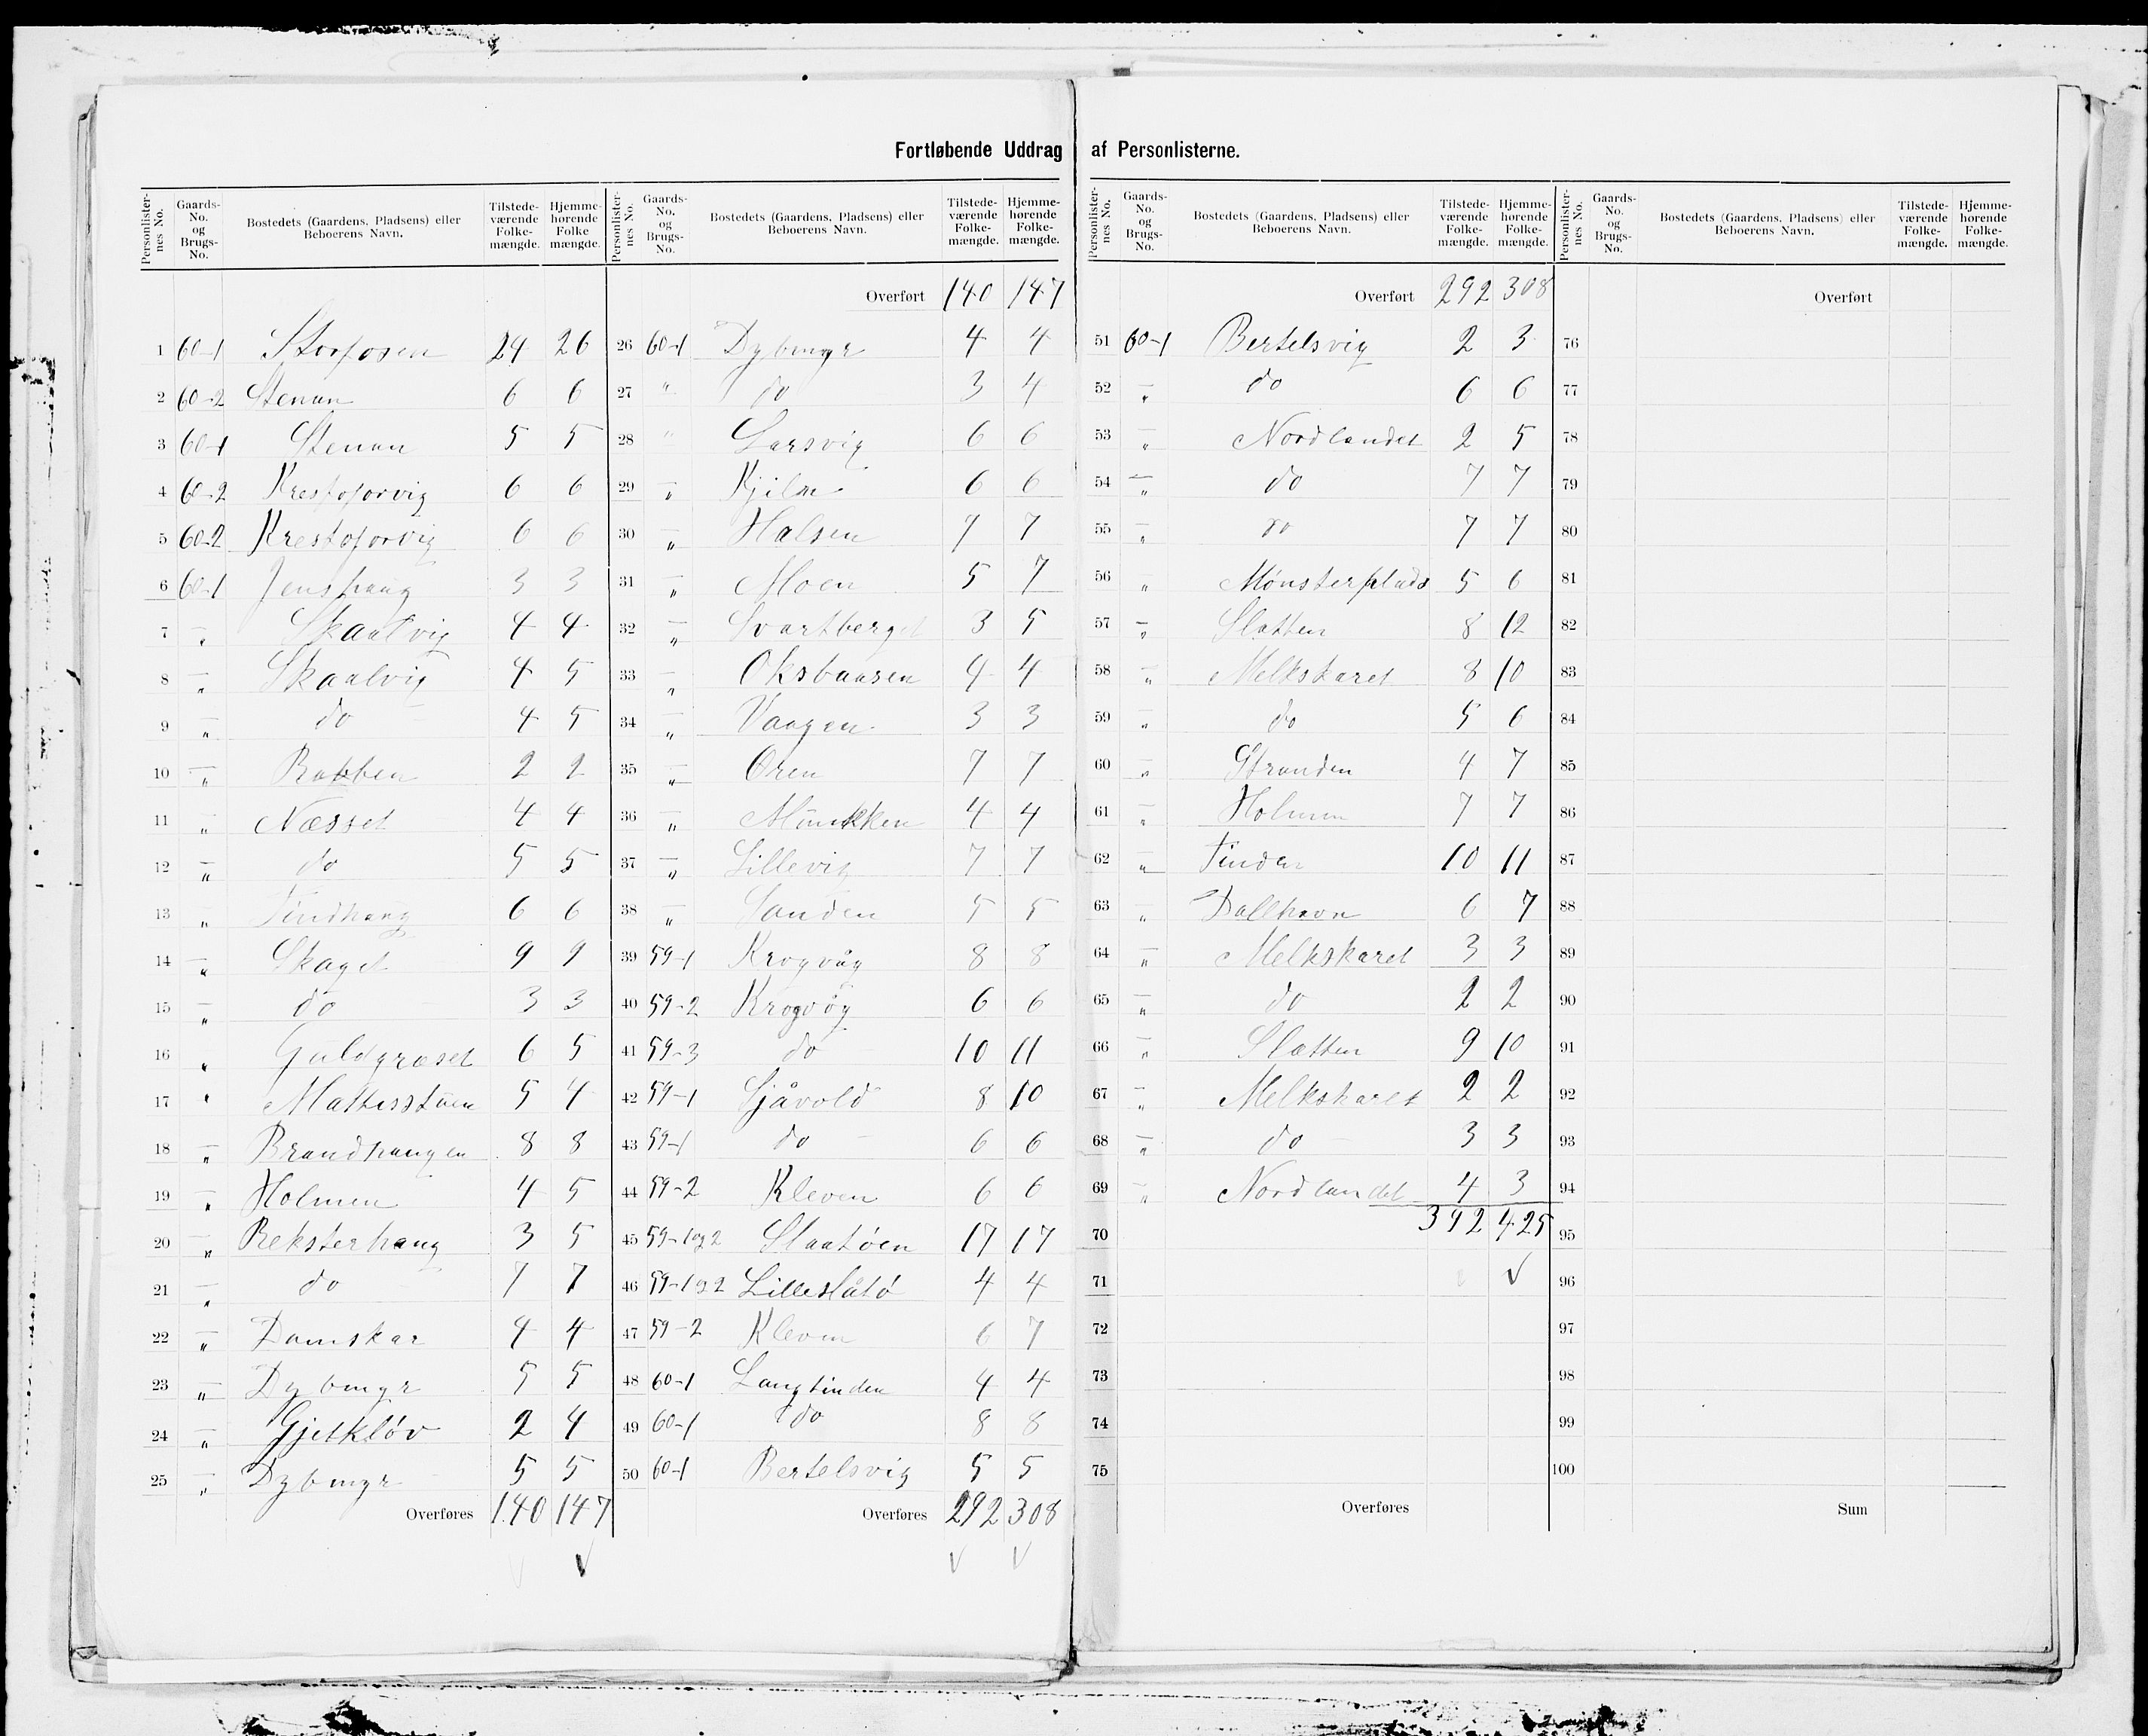 Fortløbende Uddrag af Personlisterne.
Personlisternes No. Gaards-No. og Brugs-No. Bostedets (Gaardens, Pladsens) eller Beboerens Navn. Tilstedeværende Folkemængde. Hjemmehørende Folkemængde.
1 60-1 Storfosen 24 26
2 60-2 Stenan 6 6
3 60-1 Stenan 5 5
4 60-2 Krestoforvig 6 6
5 60-2 Krestoforvig 6 6
6 60-1 Jenshaug 3 3
7 " Skaalvig 4 4
8 " Skaalvig 4 5
9 " do 4 5
10 " Rabben 2 2
11 " Næsset 4 4
12 " do 5 5
13 " Tindhaug 6 6
14 " Skaget 9 9
15 " do 3 3
16 " Guldgræset 6 5
17 " Mattisstuen 5 4
18 " Brandhaugen 8 8
19 " Holmen 4 5
20 " Reksterhaug 3 5
21 " do 7 7
22 " Damskar 4 4
23 " Dybmyr 5 5
24 " Gjetkløv 2 4
25 " Dybmyr 5 5
Overføres 140 147
Personlisternes No. Gaards-No. og Brugs-No. Bostedets (Gaardens, Pladsens) eller Beboerens Navn. Tilstedeværende Folkemængde. Hjemmehørende Folkemængde.
Overført 140 147
26 60-1 Dybmyr 4 4
27 " do 3 4
28 " Larsvig 6 6
29 " 6 6
30 " Halsen 7 7
31 " Moen 5 7
32 " Svartberget 3 5
33 " Oksbaasen 4 4
34 " Vaagen 3 3
35 " Oren 7 7
36 " Munkken 4 4
37 " Lillevig 7 7
38 " Sanden 5 5
39 59-1 Krogvåg 8 8
40 59-2 Krogvåg 6 6
41 59-3 do 10 11
42 59-1 Sjåvold 8 10
43 59-1 do 6 6
44 59-2 Kleven 6 6
45 59-1og2 Slaatøen 17 17
46 59-1og2 Lilleslåtø 4 4
47 59-2 Kleven 6 7
48 60-1 Langtinden 4 4
49 60-1 do 8 8
50 60-1 Bertelsvig 5 5
Overføres 292 308
Personlisternes No. Gaards-No. og Brugs-No. Bostedets (Gaardens, Pladsens) eller Beboerens Navn. Tilstedeværende Folkemængde. Hjemmehørende Folkemængde.
Overført 292 308
51 60-1 Bertelsvig 2 3
52 " do 6 6
53 " Nordlandet 2 5
54 " do 7 7
55 " do 7 7
56 " Mønsterplads 5 6
57 " Slatten 8 12
58 " Melkskaret 8 10
59 " do 5 6
60 " Stranden 4 7
61 " Holmen 7 7
62 " Tinden 10 11
63 " Dallhavn 6 7
64 " Melkskaret 3 3
65 " do 2 2
66 " Slatten 9 10
67 " Melkskaret 2 2
68 " do 3 3
69 " Nordlandet 4 3
70 392 425
71
72
73
74
75
Overføres
Personlisternes No. Gaards-No. og Brugs-No. Bostedets (Gaardens, Pladsens) eller Beboerens Navn. Tilstedeværende Folkemængde. Hjemmehørende Folkemængde.
Overført
76
77
78
79
80
81
82
83
84
85
86
87
88
89
90
91
92
93
94
95
96
97
98
99
100
Sum